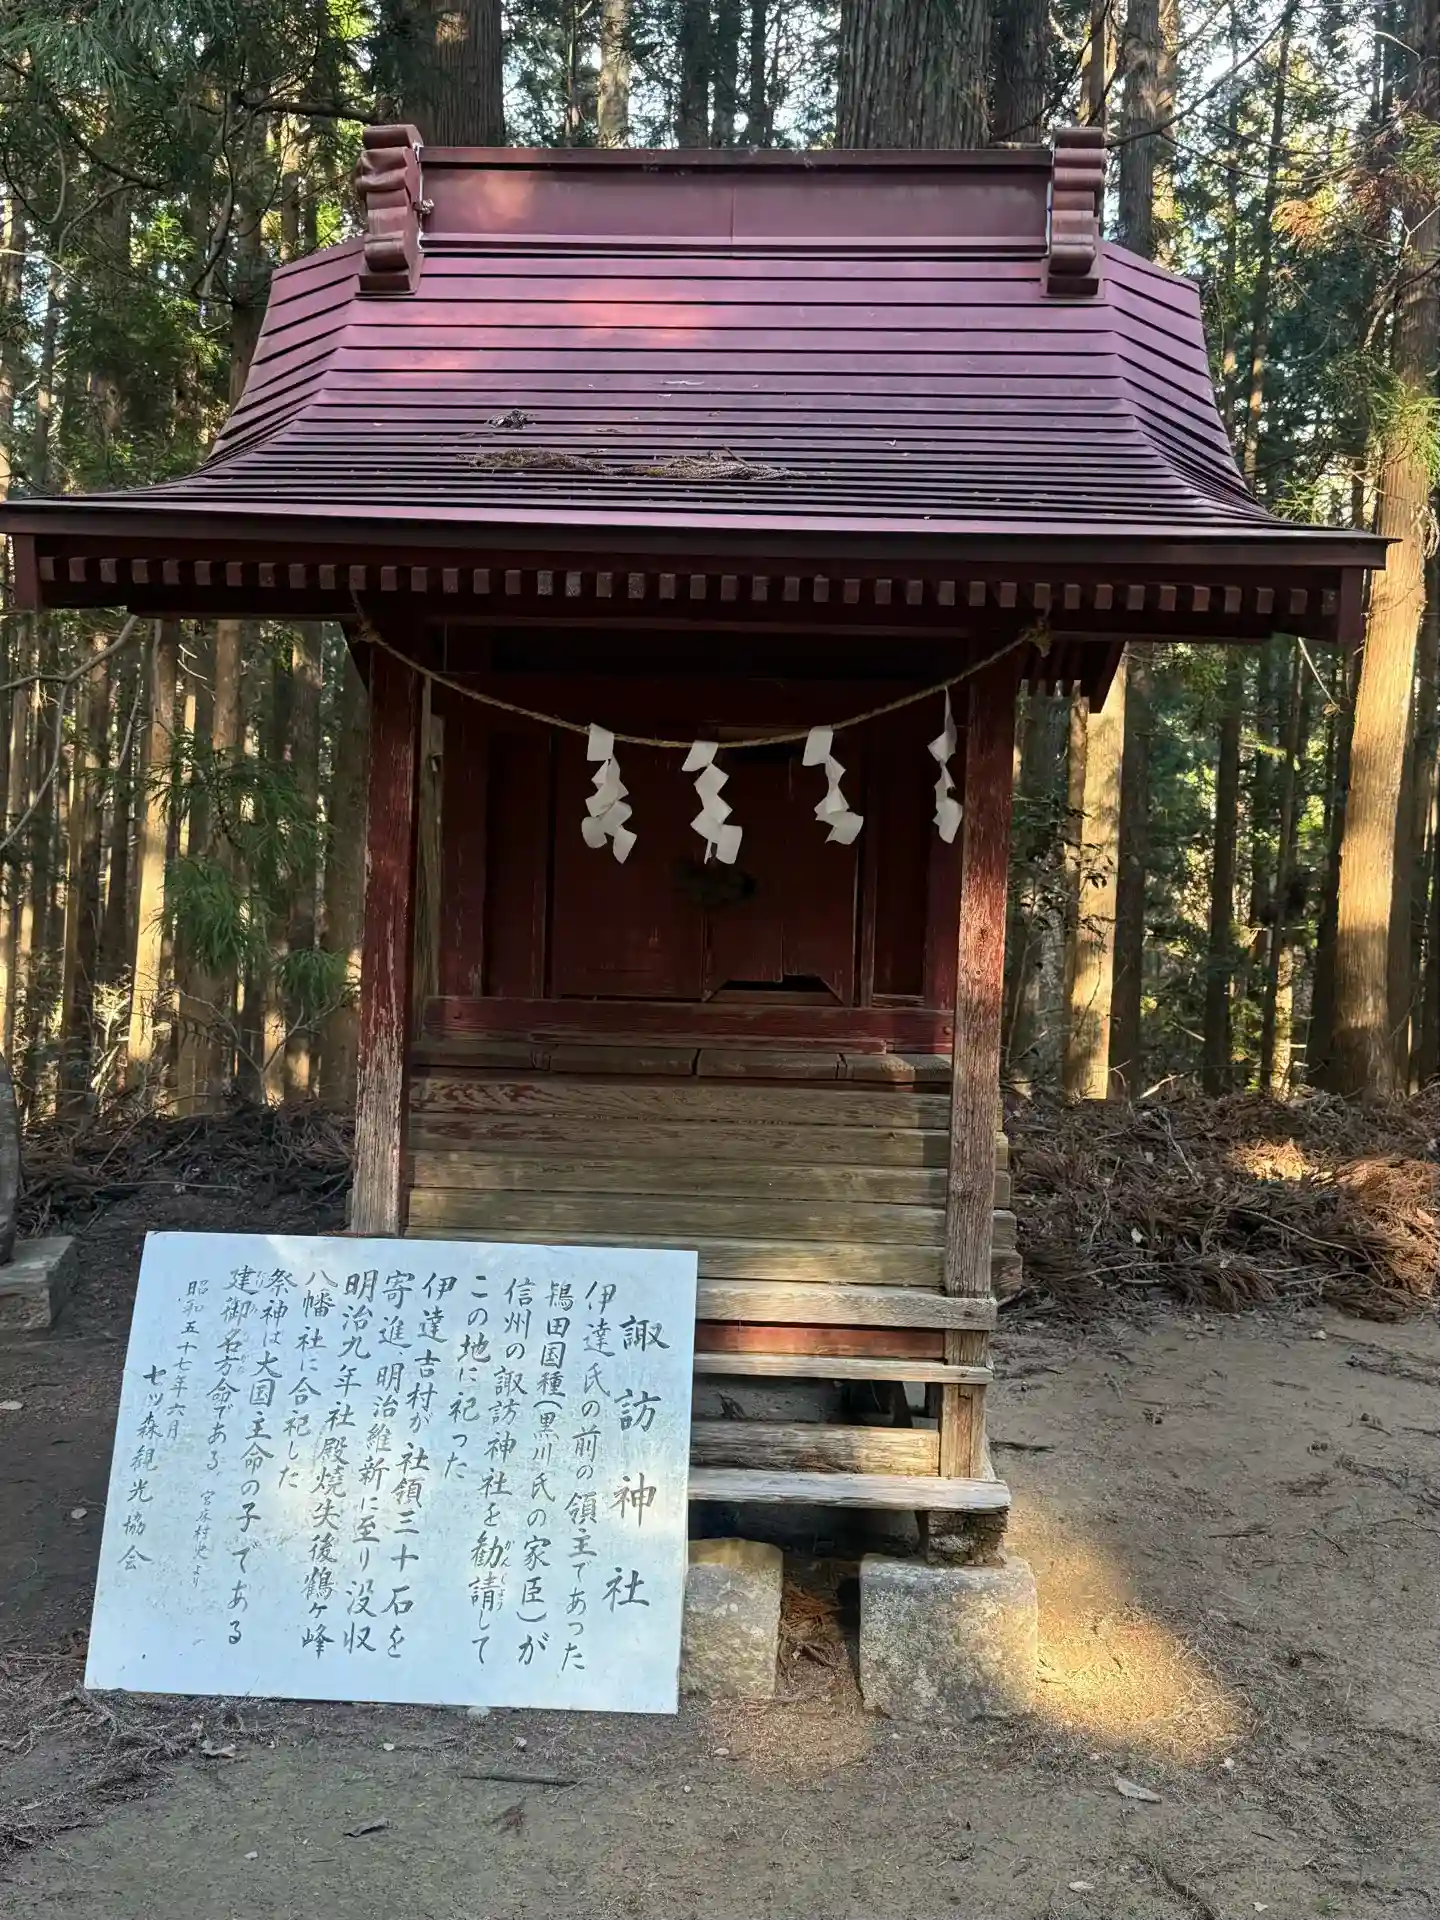 諏訪神社
伊達氏の前の領主であった
鴇田国種(黒川氏の家臣)が
信州の諏訪神社を勧請して
かんじょう
この地に祀った
伊達吉村が社領三十石を
寄進明治維新に至り没収
明治九年社殿焼失後鶴ヶ峰
八幡社に合祀した
祭神は大国主命の子である
建御名方命である
宮床村史より
昭和五十七年六月
七ツ森観光協会